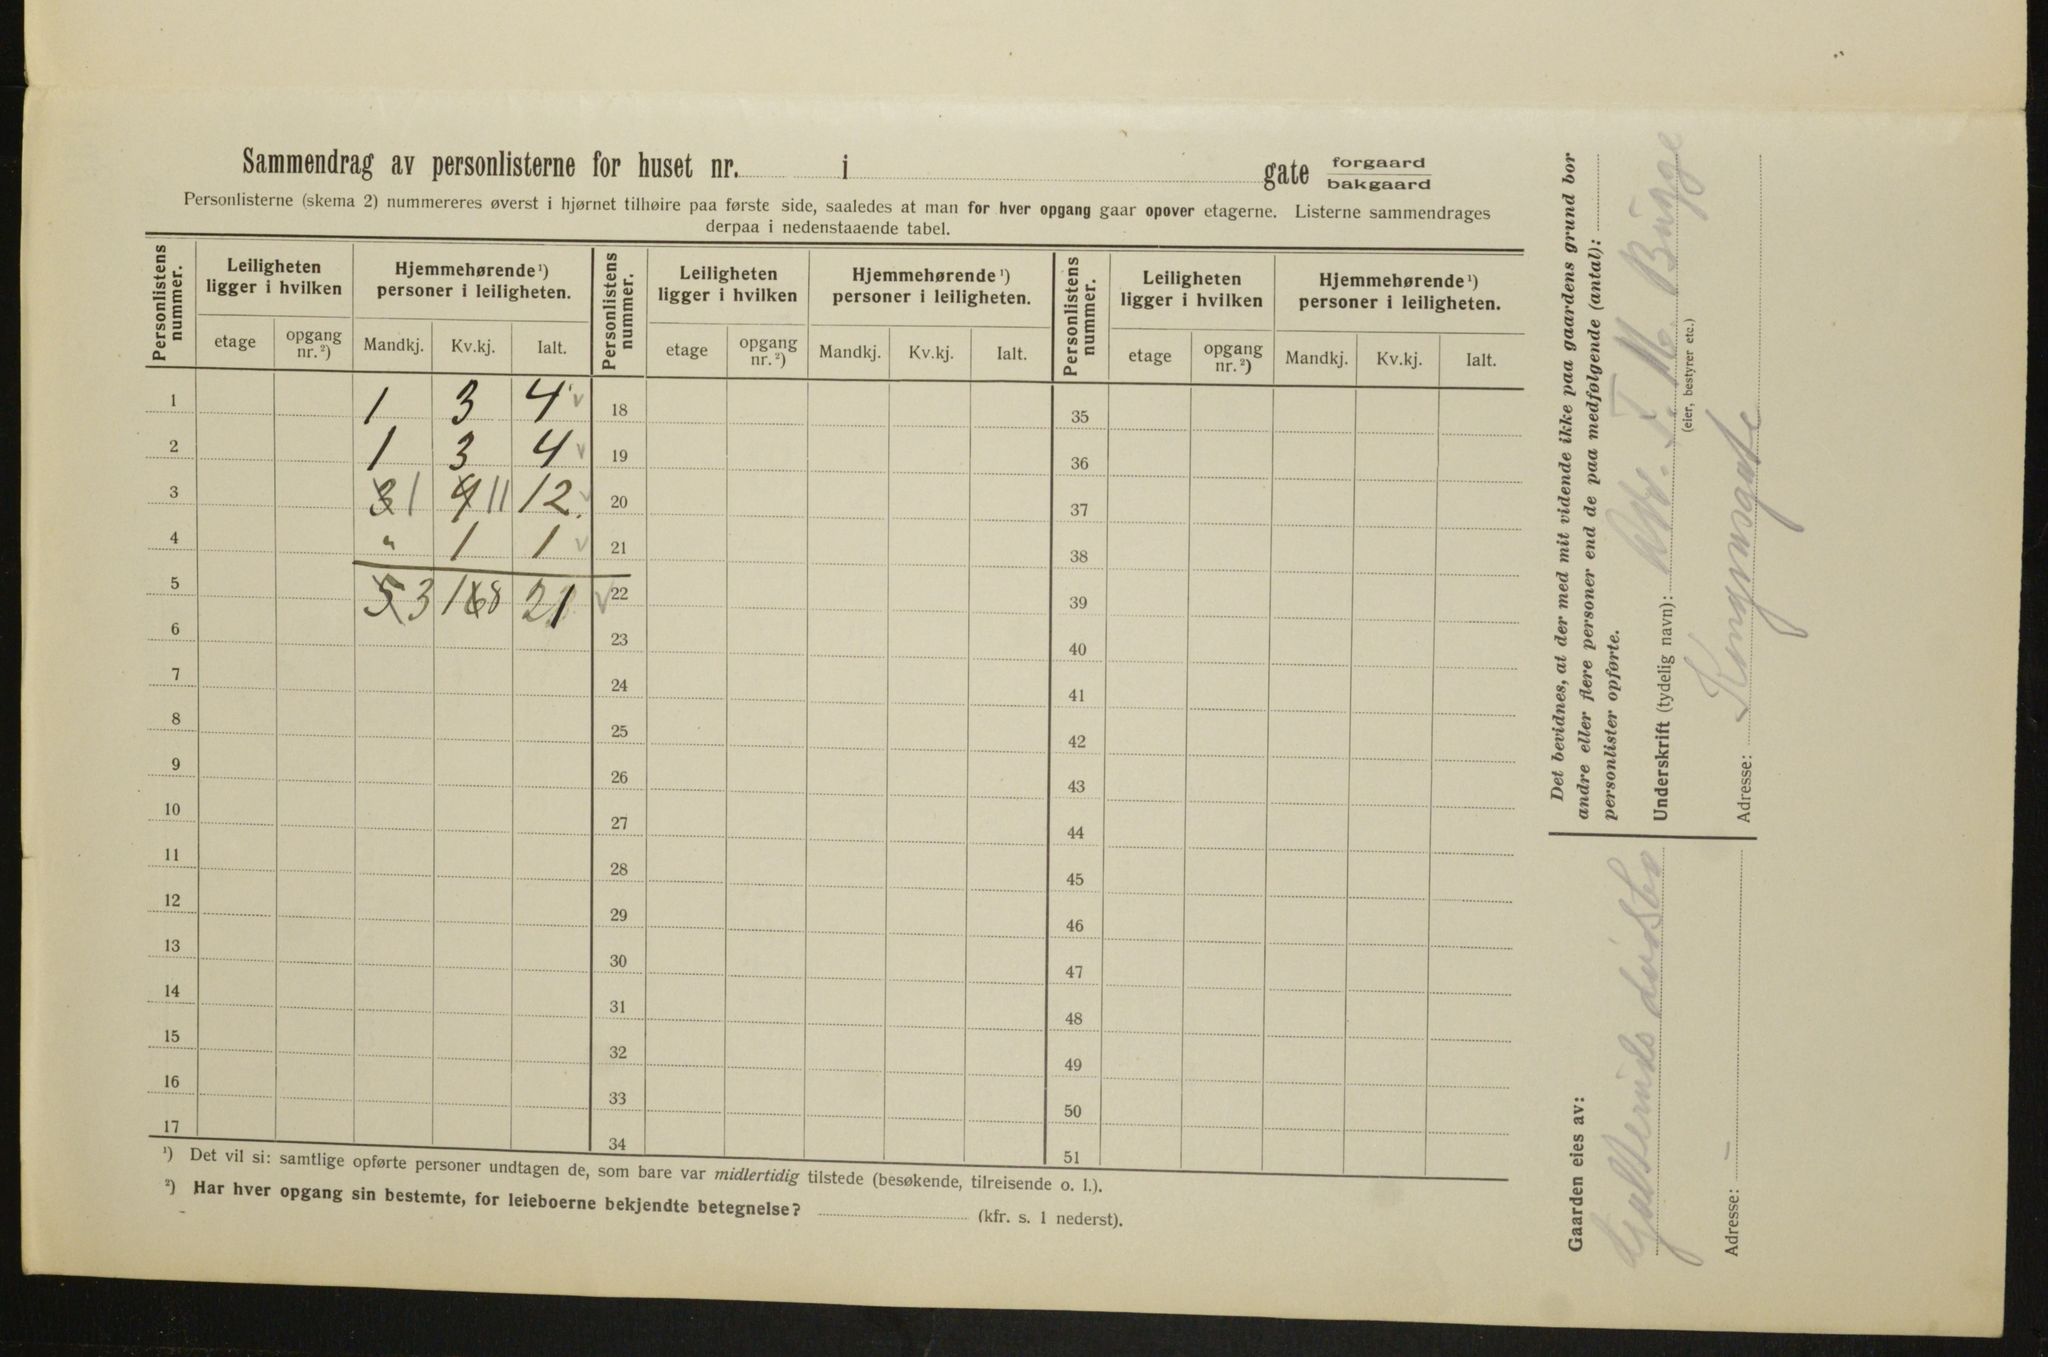 Sammendrag av personlisterne for huset nr. i gate forgaard bakgaard
Personlisterne (skema 2) nummereres øverst i hjørnet tilhøire paa første side, saaledes at man for hver opgang gaar opover etagerne. Listerne sammendrages
derpaa i nedenstaaende tabel.
Personlistens nummer. Leiligheten ligger i hvilken Hjemmehørende ¹) personer i leiligheten. Personlistens nummer. Leiligheten ligger i hvilken Hjemmehørende ¹) personer i leiligheten. Personlistens nummer. Leiligheten ligger i hvilken Hjemmehørende ¹) personer i leiligheten.
etage opgang nr. ²) Mandkj. Kv.kj. Ialt. etage opgang nr. ²) Mandkj. Kv.kj. Ialt. etage opgang nr. ²) Mandkj. Kv.kj. Ialt.
1 1 3 4 v 18 35
2 1 3 4 v 19 36
3 3 1 9 11 12. v 20 37
4 " 1 1 v 21 38
5 5 3 168 21 v 22 39
6 23 40
7 24 41
8 25 42
9 26 43
10 27 44
11 28 45
12 29 46
13 30 47
14 31 48
15 32 49
16 33 50
17 34 51
¹) Det vil si: samtlige opførte personer undtagen de, som bare var midlertidig tilstede (besøkende, tilreisende o. l.).
²) Har hver opgang sin bestemte, for leieboerne bekjendte betegnelse? (kfr. s. 1 nederst).
Det bevidnes, at der med mit vidende ikke paa gaardens grund bor
andre eller flere personer end de paa medfølgende (antal):
personlister opførte.
Underskrift (tydelig navn): F. M. Bugge
(eier, bestyrer etc.)
Adresse: Kongensgate
Gaarden eies av:
Adresse: —